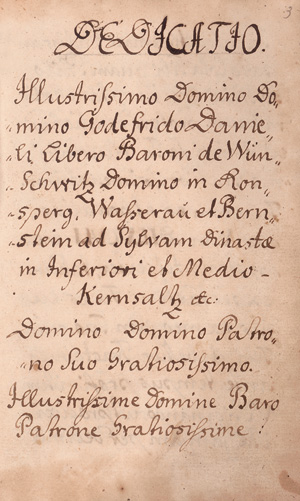 3
DEDICATIO.
Illustrissimo Domino Do„
„mino Godefrido Danie„
„li Libero Baroni de Wün„
„Schwitz Domino in Ron„
„sperg, Wasserau et Bern„
„stein ad Sylvam Dinastæ
in Inferiori et Medio-
Kernsaltz &c:
Domino Domino Patro„
„no Suo Gratiosissimo.
Illustrissime Domine Baro
Patrone Gratiosissime !